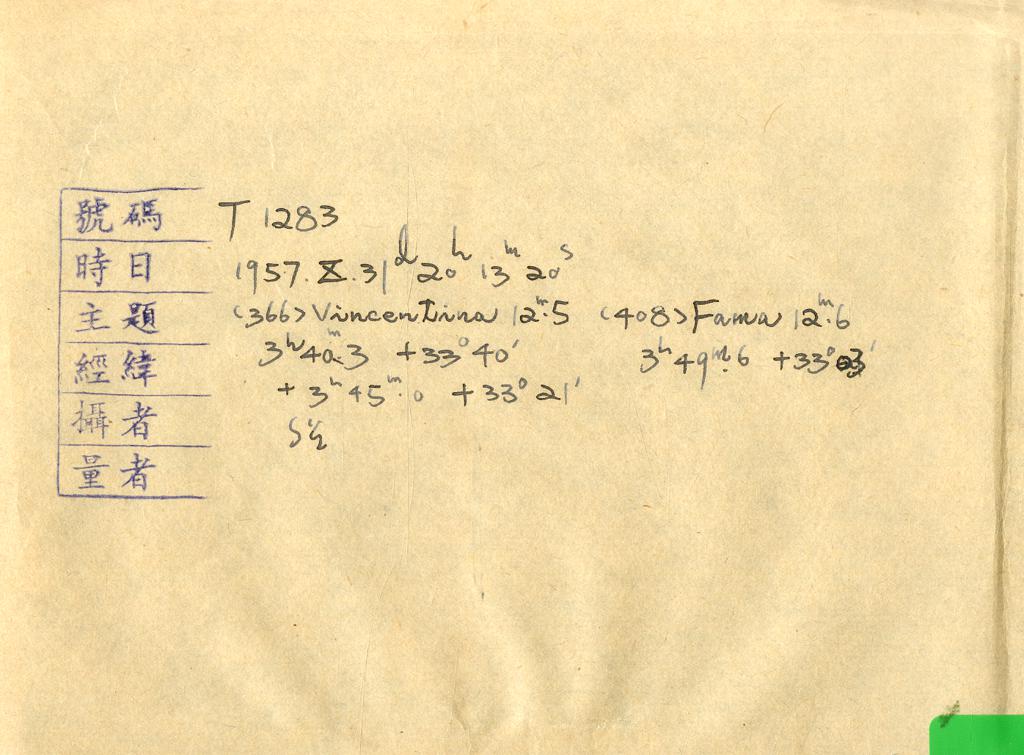 號碼 T 1283
時日 1957. X. 31ᵈ 20ʰ 13ᵐ 20ˢ
主題 (366) Vincentina 12ᵐ.5 (408) Fama 12ᵐ.6
經緯 3ʰ 40ᵐ.3 +33° 40′ 3ʰ 49ᵐ.6 +33° 03′
攝者 + 3ʰ 45ᵐ.0 +33° 21′
S½
量者